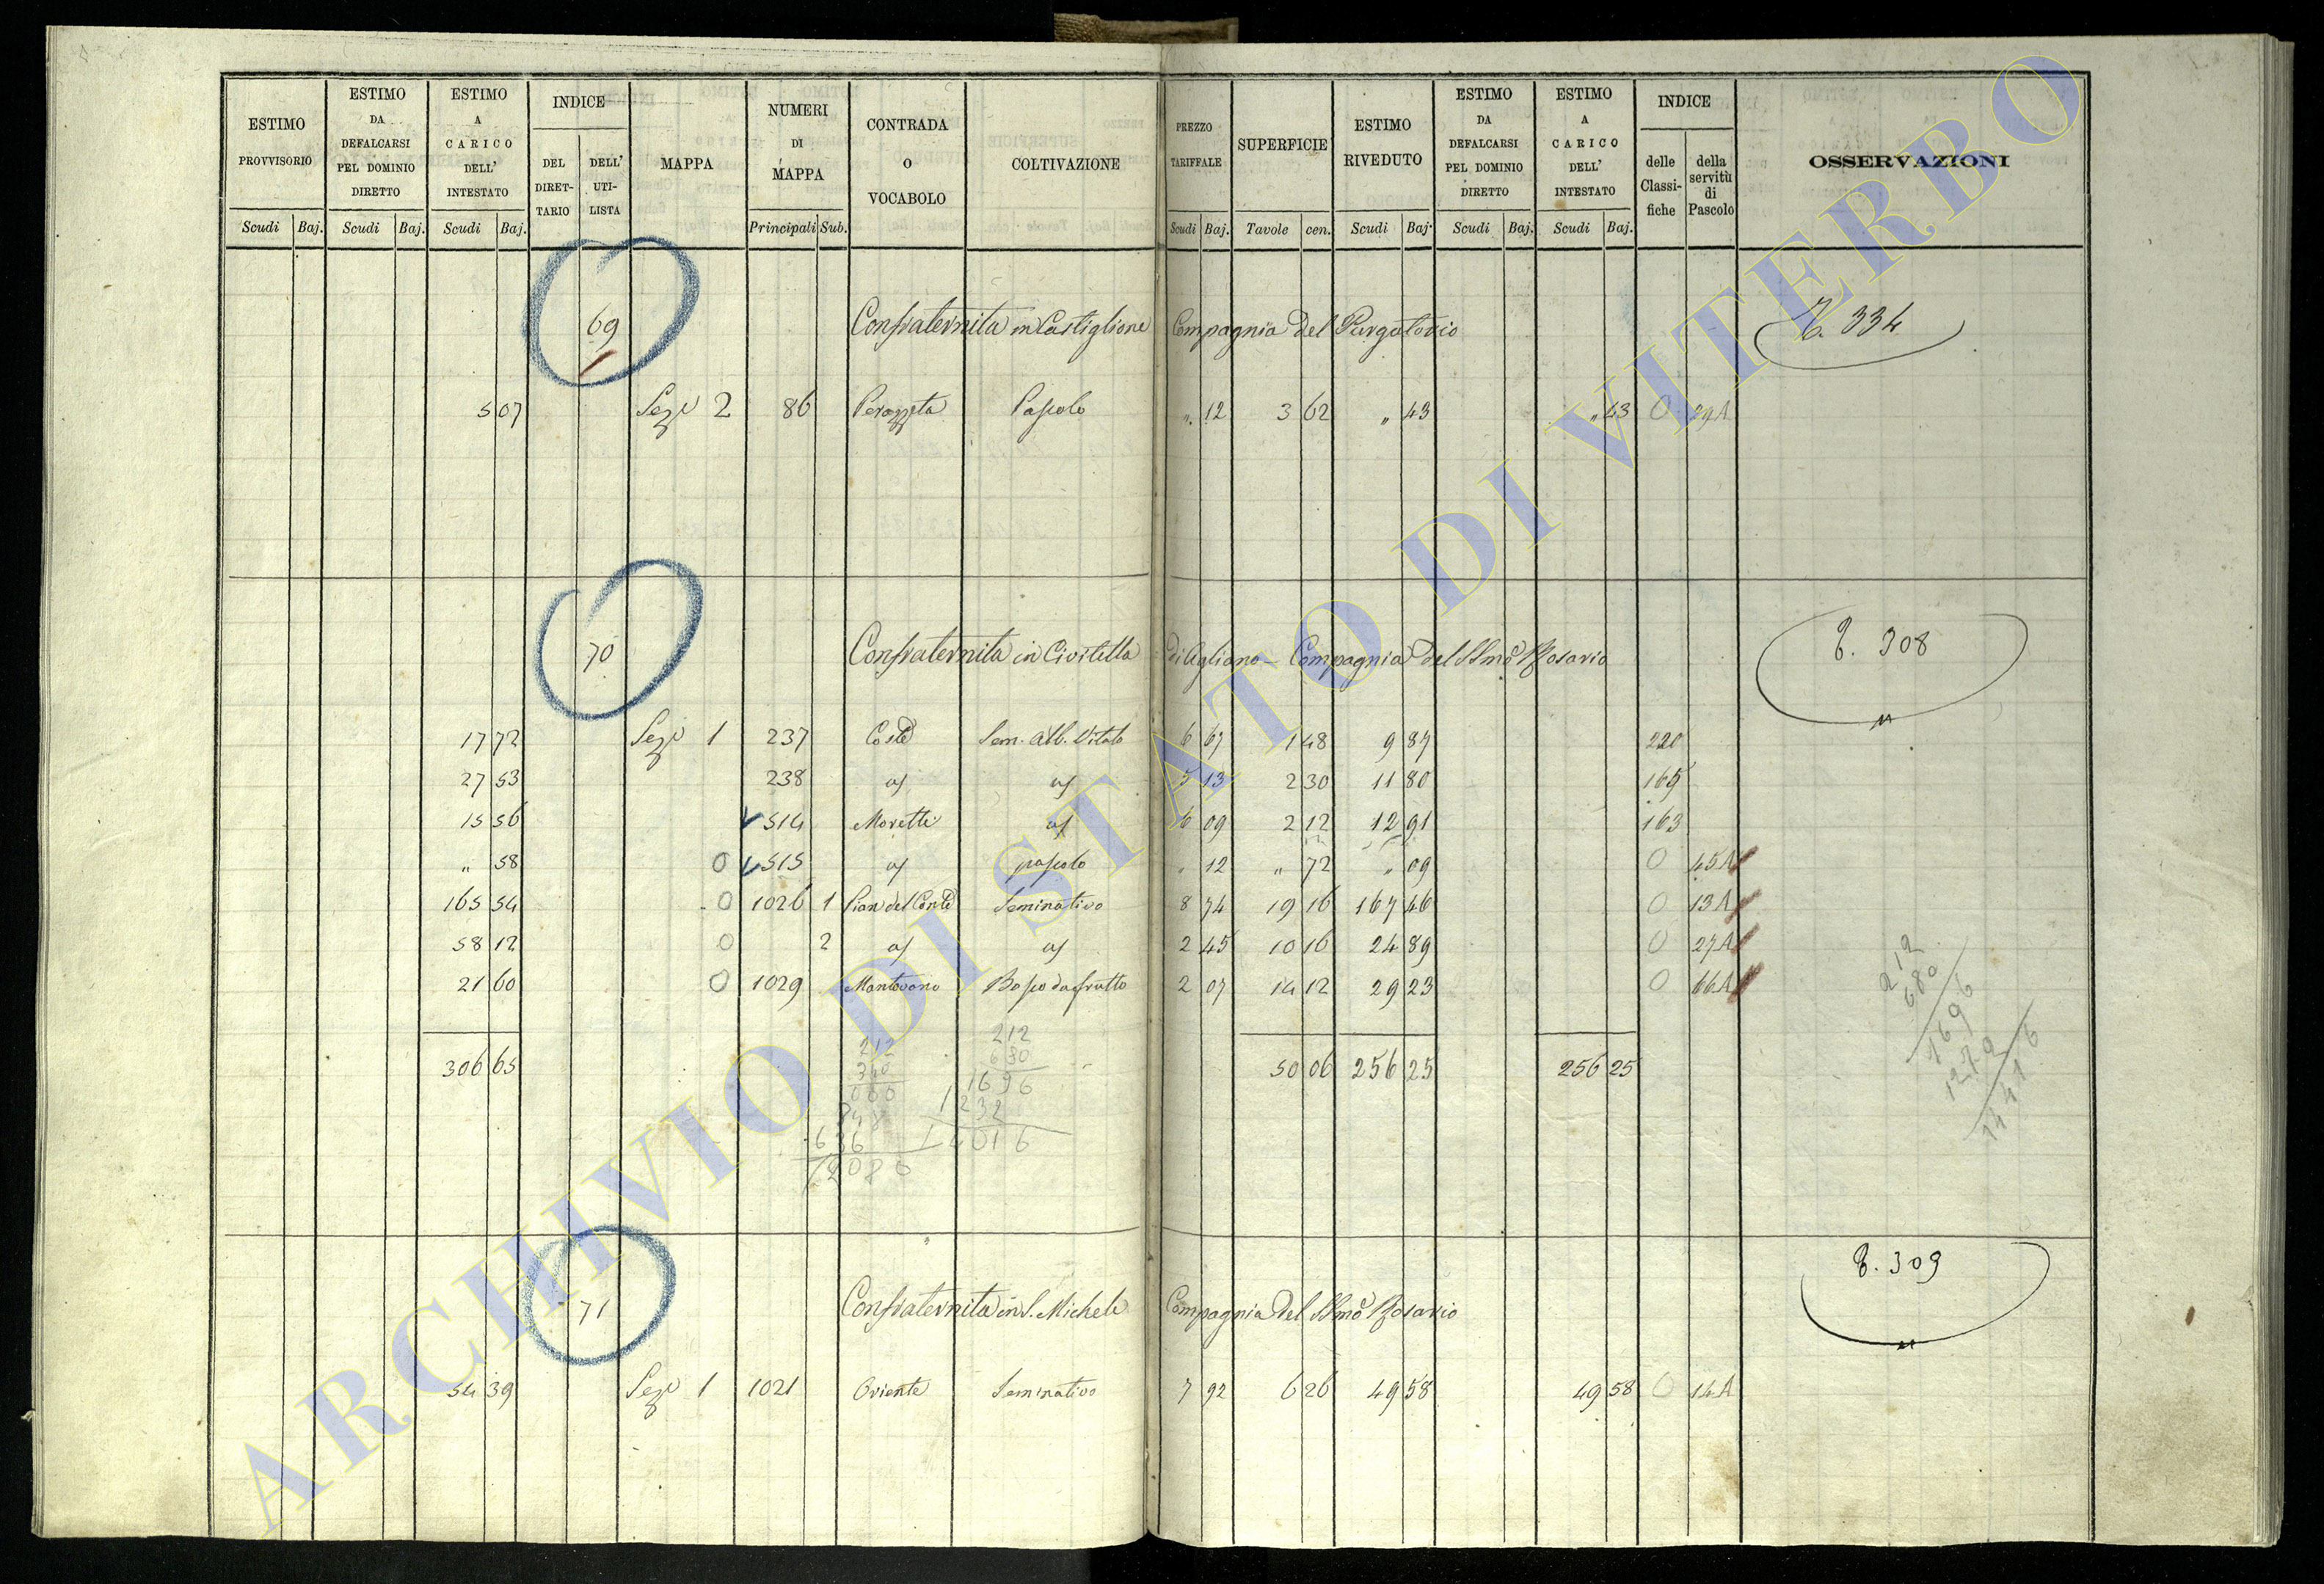 ESTIMO PROVVISORIO | ESTIMO DA DEFALCARSI PEL DOMINIO DIRETTO | ESTIMO A CARICO DELL' INTESTATO | INDICE | DEL DIRETTARIO | DELL' UTILISTA | MAPPA | NUMERI DI MAPPA | CONTRADA O VOCABOLO | COLTIVAZIONE | PREZZO TARIFFALE | SUPERFICIE | ESTIMO RIVEDUTO | ESTIMO DA DEFALCARSI PEL DOMINIO DIRETTO | ESTIMO A CARICO DELL' INTESTATO | INDICE | delle Classifiche | della servitù di Pascolo | OSSERVAZIONI
Scudi | Baj. | Scudi | Baj. | Scudi | Baj. | Principali | Sub. | Scudi | Baj. | Tavole | cen. | Scudi | Baj. | Scudi | Baj. | Scudi | Baj.
69 Confraternita in Castiglione Compagnia del Purgatorio 334
5 07 Sez 2 86 Pascolo " 12 3 62 " 43 " 43 0 29A
70 Confraternita in Civitella d'Agliano - Compagnia del SSmo Rosario 308
17 72 Sez 1 237 Coste Sem. alb. Vitato 6 67 1 48 9 87 220
27 53 238 5 13 2 30 11 80 165
15 56 514 Moretti 6 09 2 12 12 91 163
" 58 0 515 pascolo " 12 " 72 " 09 0 45A
165 54 0 1026 1 Pian del Conte Seminativo 8 74 19 16 167 46 0 13A
58 12 0 2 2 45 10 16 24 89 0 27A
21 60 0 1029 Mantovano Bosco da frutto 2 07 14 12 29 23 0 66A
306 65 50 06 256 25 256 25
212
680
1696
71 Confraternita in S. Michele Compagnia del SSmo Rosario 309
54 39 Sez 1 1021 Oriente Seminativo 7 92 6 26 49 58 49 58 0 14A
ARCHIVIO DI STATO DI VITERBO